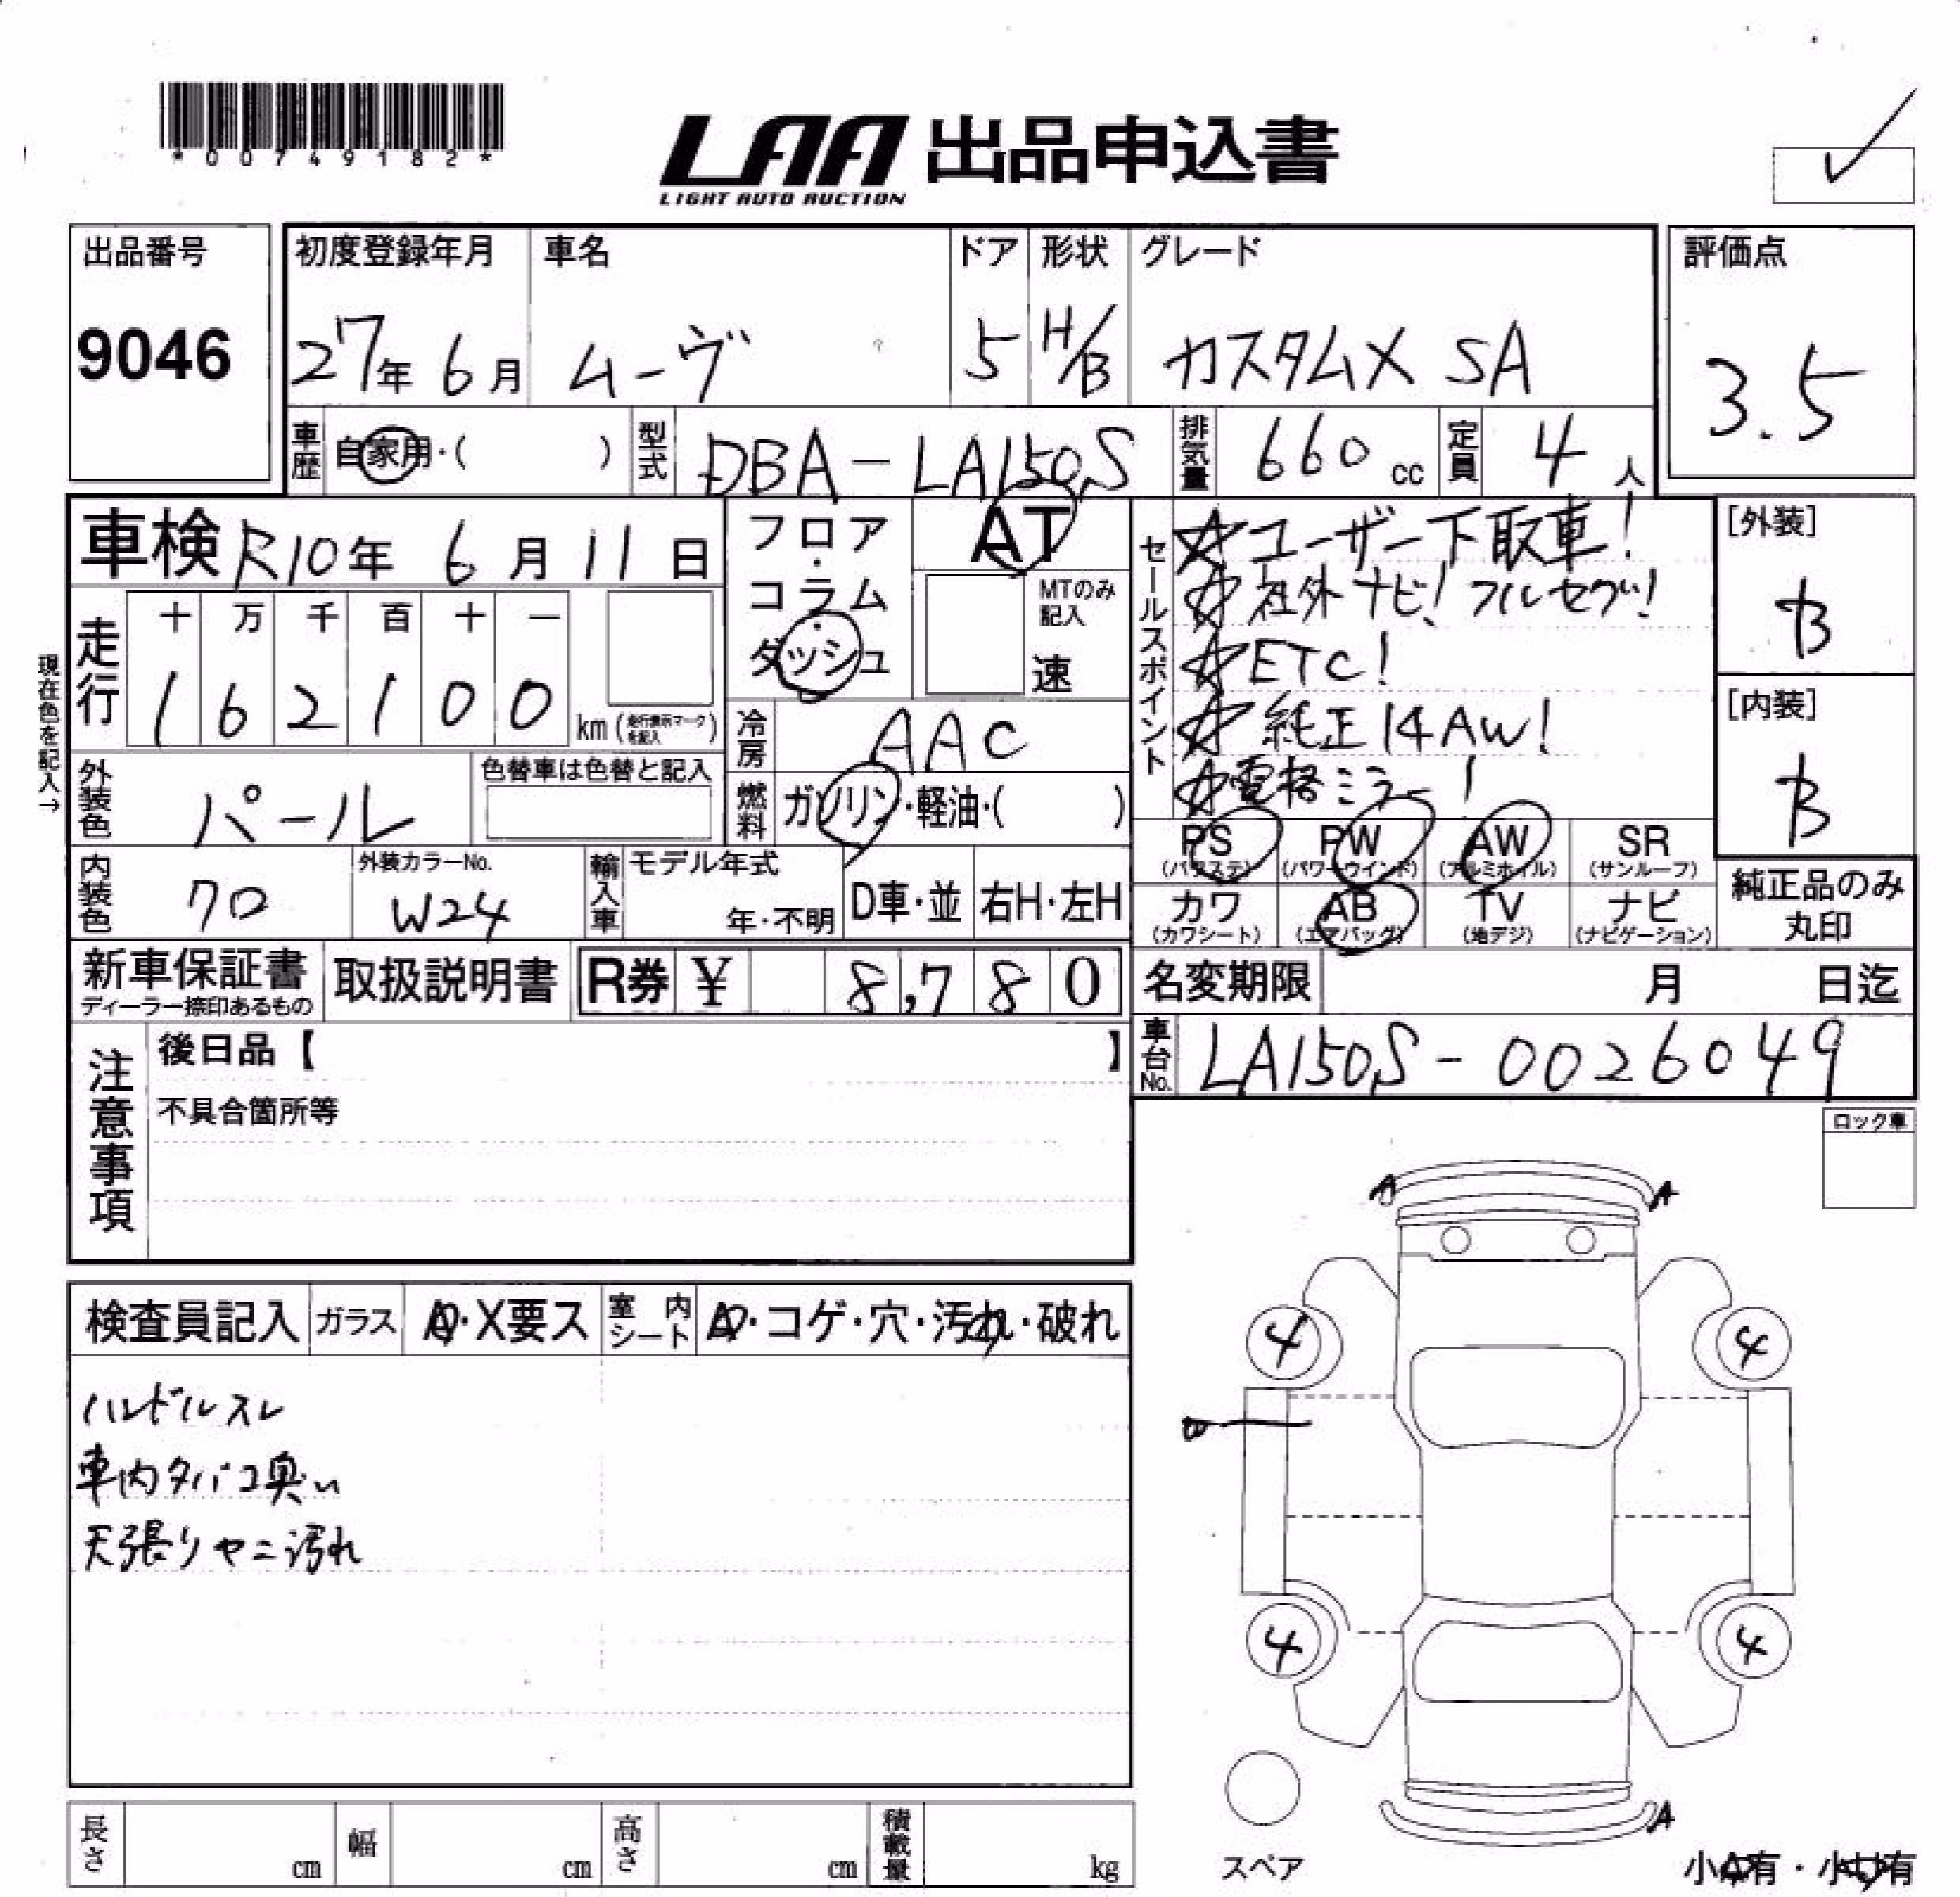 *00749182*
LAA 出品申込書
LIGHT AUTO AUCTION
出品番号
9046
初度登録年月 車名 ドア 形状 グレード
27年 6月 ムーヴ 5 H/B カスタムX SA
評価点
3.5
車歴 自家用・( ) 型式 DBA-LA150S 排気量 660 cc 定員 4 人
車検 R10年 6月 11日
フロア・コラム・ダッシュ
AT
MTのみ記入
速
走行 十 万 千 百 十 一
1 6 2 1 0 0 km (走行表示マークを記入)
現在色を記入→
冷房 AAC
外装色 パール
色替車は色替と記入
燃料 ガソリン・軽油・( )
内装色 クロ
外装カラーNo.
W24
輸入車 モデル年式
年・不明 D車・並 右H・左H
セールスポイント
☆ユーザー下取車!
☆社外ナビ!フルセグ!
☆ETC!
☆純正14AW!
☆電格ミラー!
[外装]
B
[内装]
B
PS (パワステ) PW (パワーウインド) AW (アルミホイル) SR (サンルーフ)
カワ (カワシート) AB (エアバッグ) TV (地デジ) ナビ (ナビゲーション)
純正品のみ丸印
新車保証書
ディーラー捺印あるもの
取扱説明書
R券 ¥ 8,780
名変期限 月 日迄
車台No. LA150S-0026049
注意事項
後日品【 】
不具合箇所等
ロック車
検査員記入 ガラス A・X要ス 室内シート A・コゲ・穴・汚れ・破れ
ハンドルスレ
車内タバコ臭い
天張りヤニ汚れ
A A
4 4
4 4
A
スペア
小A有・小U有
長さ cm 幅 cm 高さ cm 積載量 kg